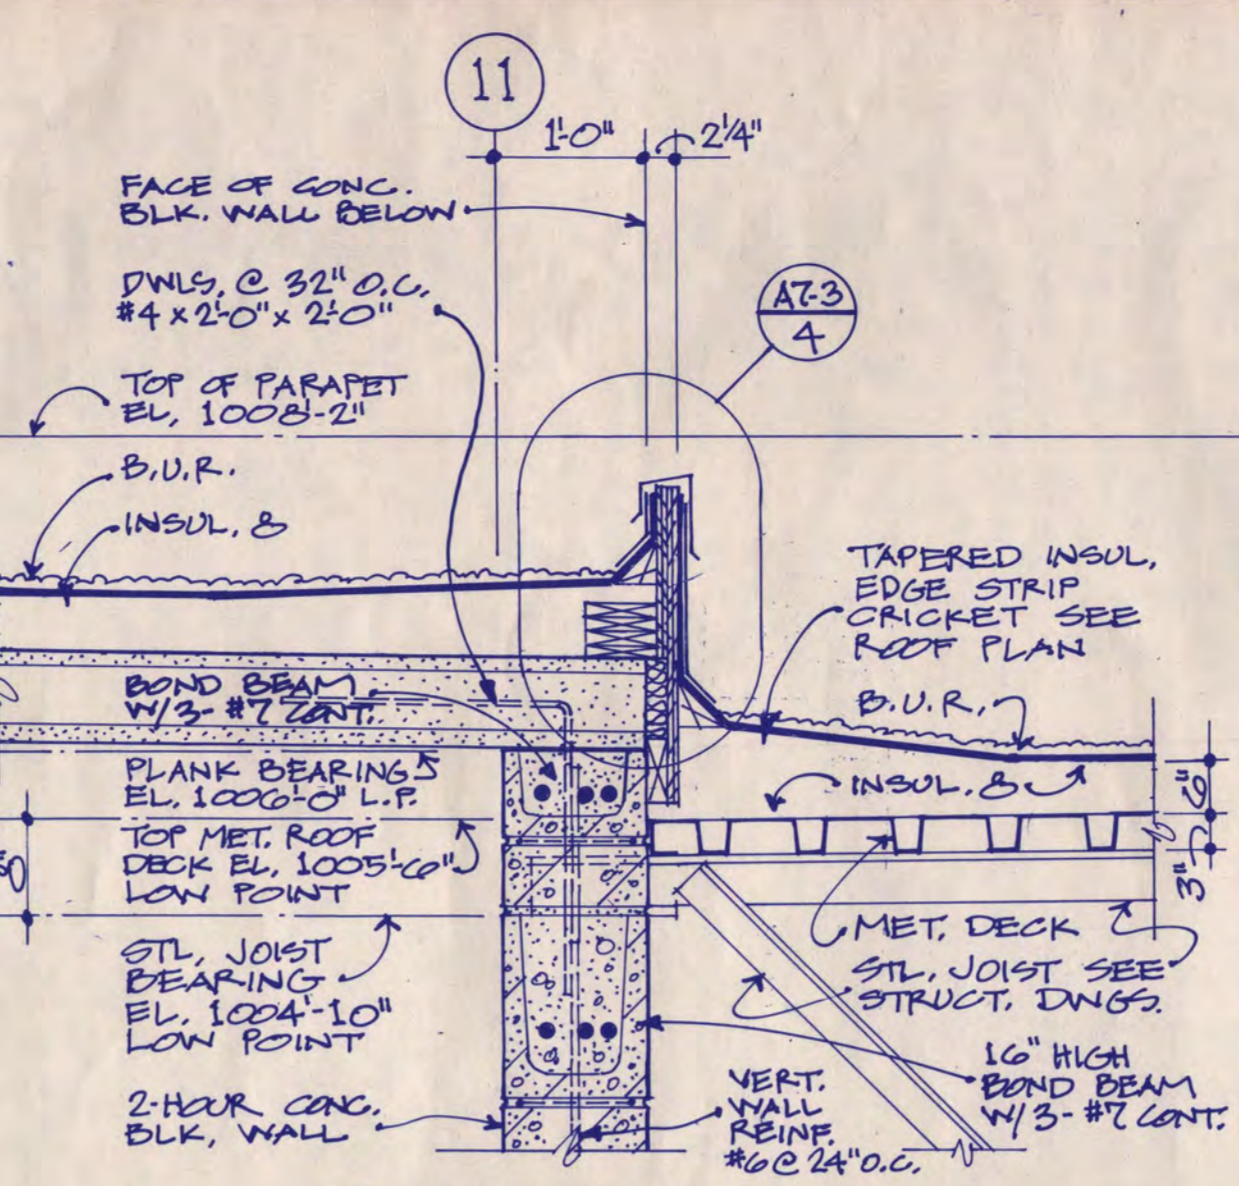 11
1'-0"
2 1/4"
FACE OF CONC.
BLK. WALL BELOW
DWLS, @ 32" O.C.
#4 x 2'-0" x 2'-0"
A7-3
4
TOP OF PARAPET
EL, 1008'-2"
B.U.R.
INSUL, 8
TAPERED INSUL,
EDGE STRIP
CRICKET SEE
ROOF PLAN
BOND BEAM
W/3- #7 CONT.
B.U.R.
PLANK BEARING
EL, 1006'-0" L.P.
INSUL, 8
6"
TOP MET. ROOF
DECK EL, 1005'-6"
LOW POINT
3"
MET. DECK
STL, JOIST
BEARING
EL, 1004'-10"
LOW POINT
STL, JOIST SEE
STRUCT. DWGS.
16" HIGH
BOND BEAM
W/3- #7 CONT.
VERT.
WALL
REINF.
#6 @ 24" O.C.
2-HOUR CONC.
BLK, WALL